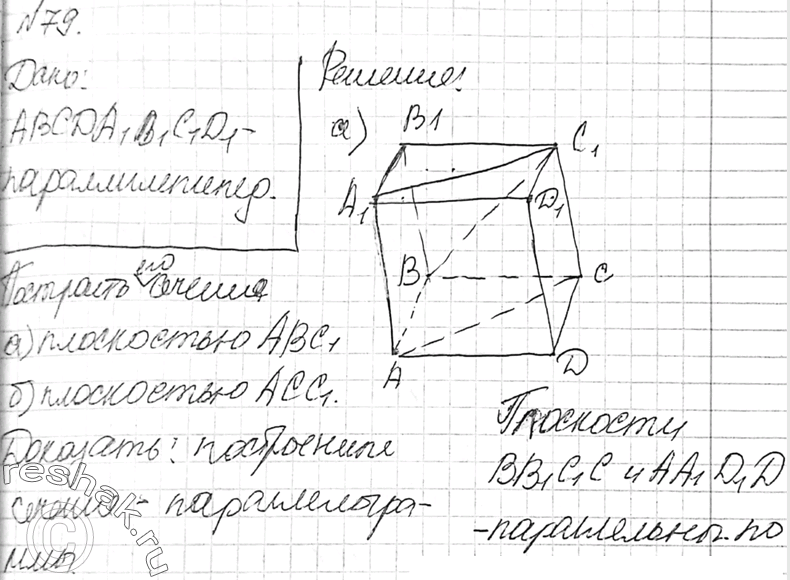 №79.
Дано:
ABCDA₁B₁C₁D₁-
параллилепипед.
Построить его сечения
а) плоскостью ABC₁
б) плоскостью ACC₁.
Доказать: построенные
сечения - параллелогра-
ммы.
Решение:
а)
B1
C₁
A₁
D₁
B
C
A
D
Плоскости
BB₁C₁C и AA₁D₁D
-параллельны по
reshak.ru